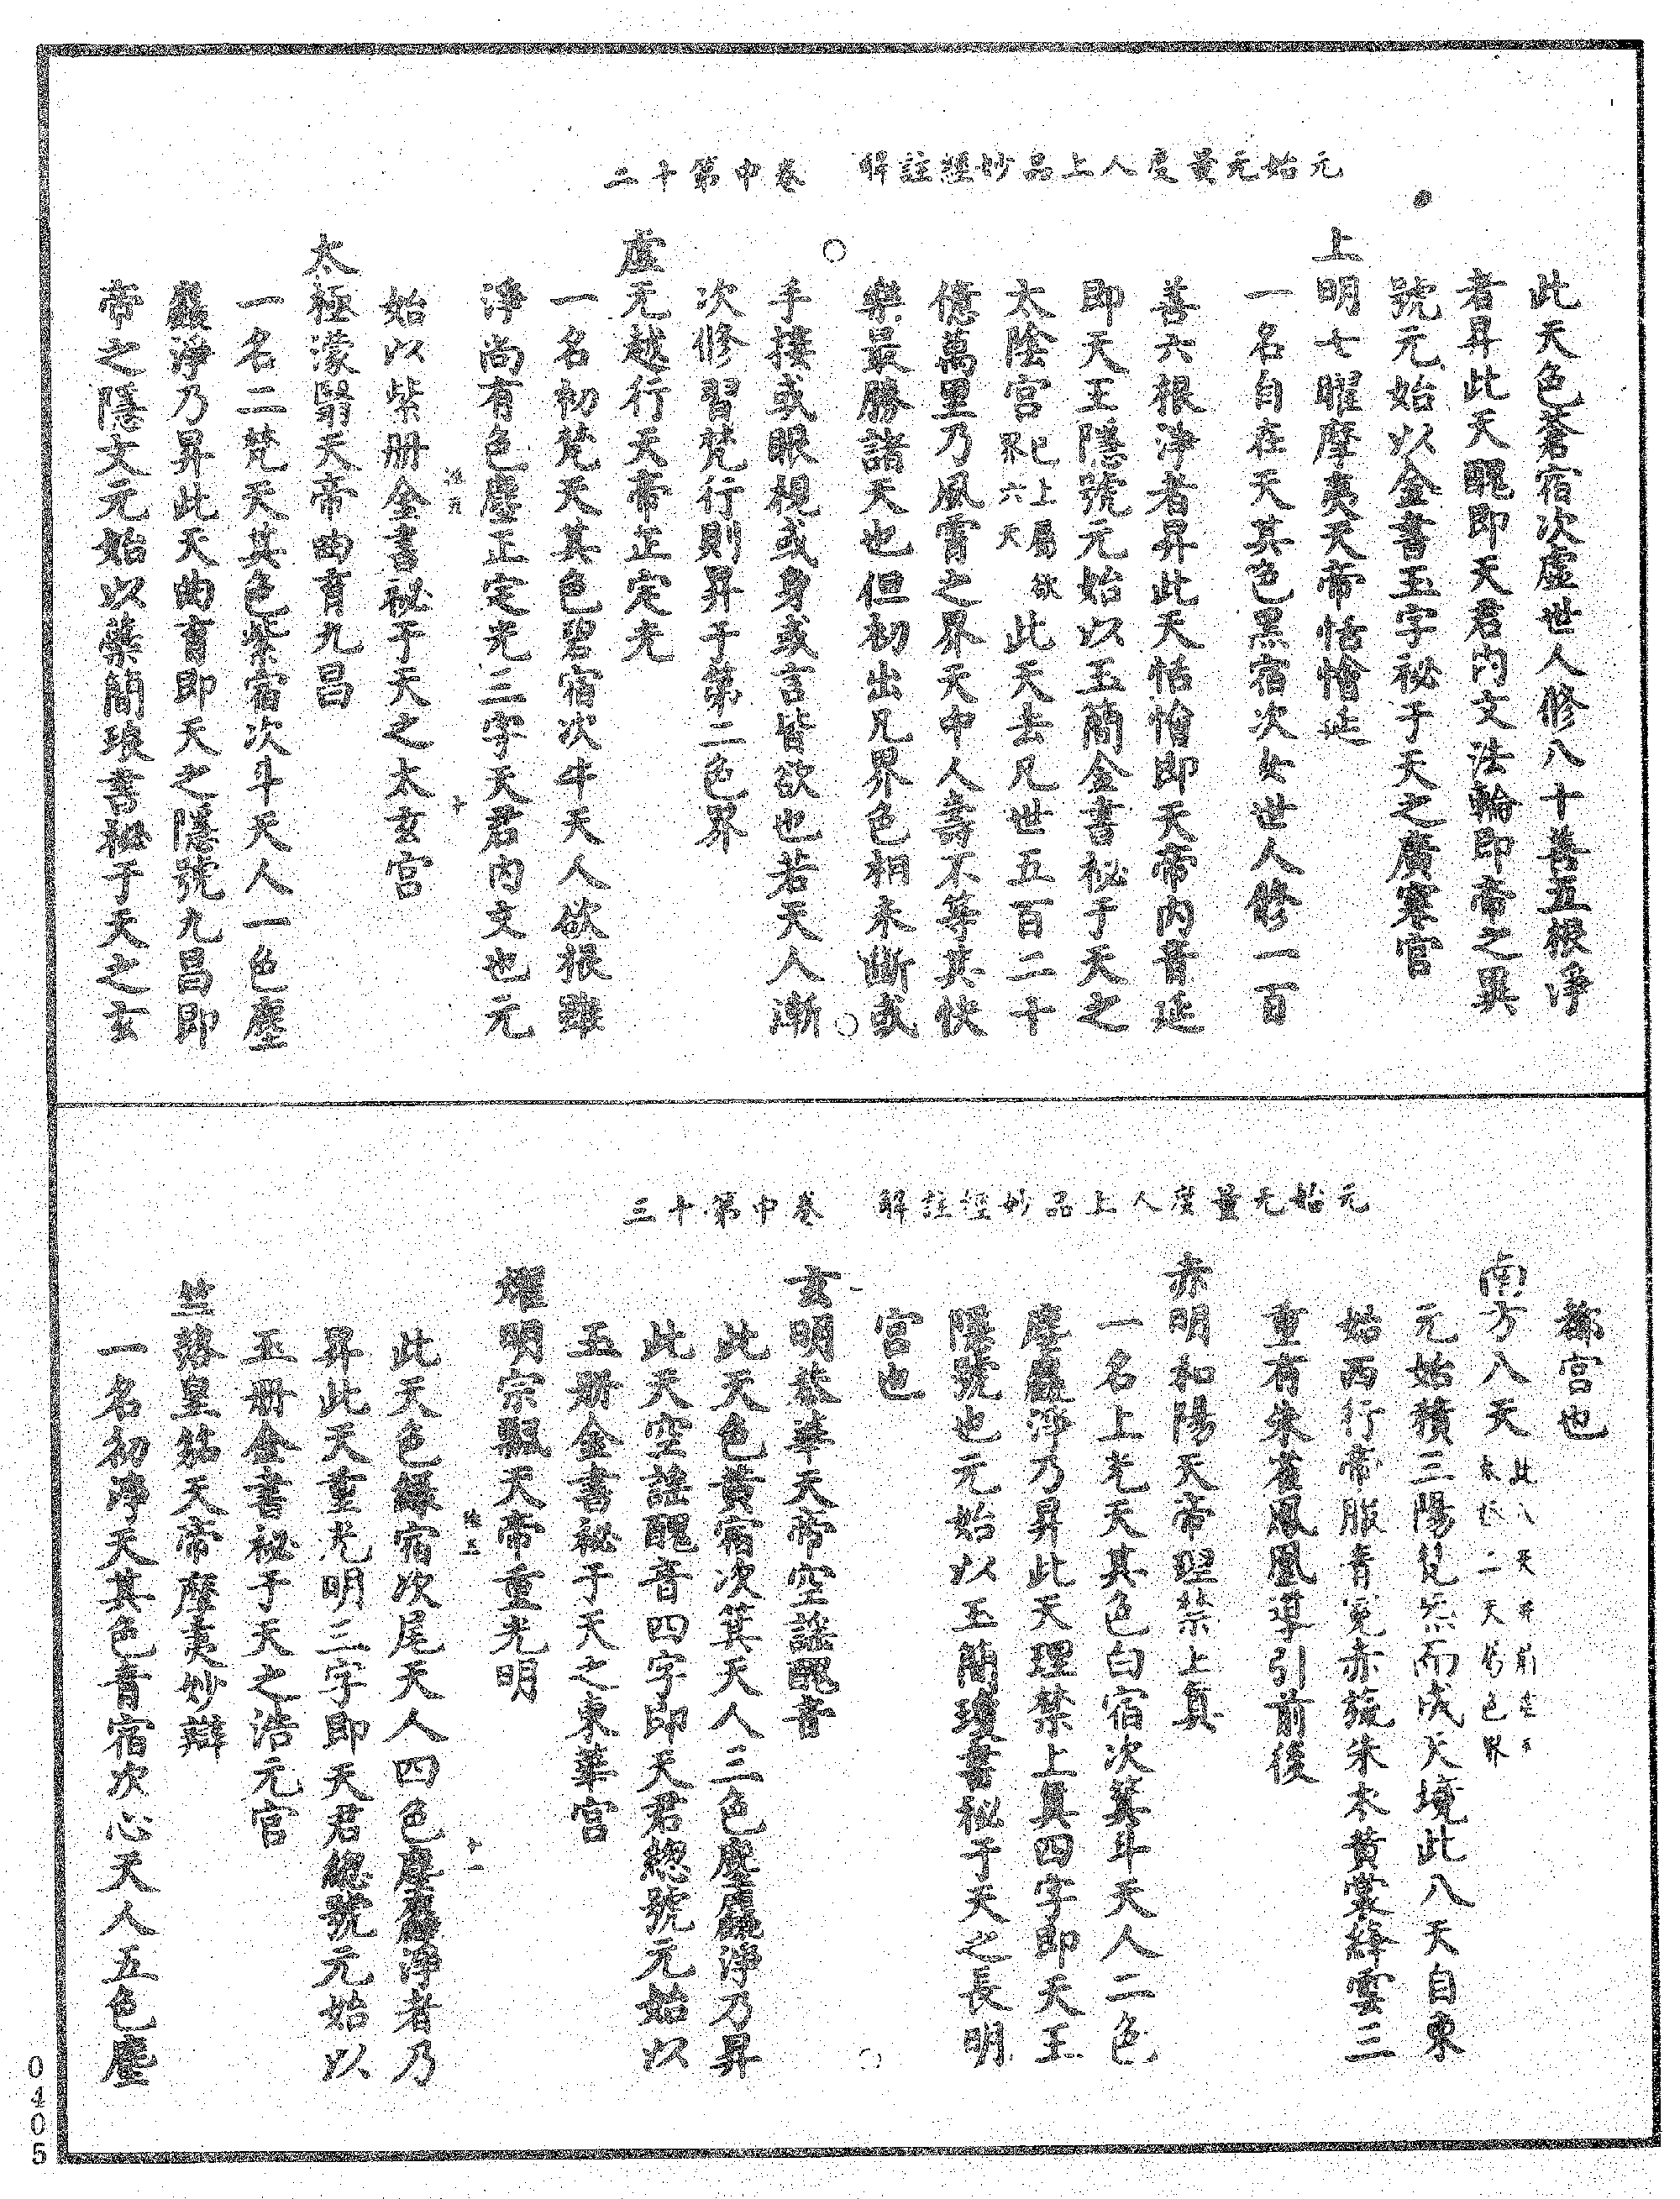 元始无量度人上品妙經註解　卷中第十二
此天色蒼宿次虛世人修八十善五根淨
者昇此天醜即天君內文法輪即帝之異
號元始以金書玉字祕于天之廣寒官
上明七曜摩夷天帝恬懀延
一名自在天其色黑宿次女世人修一百
善六根淨者昇此天恬懀即天帝內音延
即天王隱號元始以玉簡金書祕于天之
太陰宮已上屬欲界六天此天去凡世五百二十
億萬里乃風霄之界天中人壽不等其快
樂最勝諸天也但初出凡界色相未斷或
手接或眼視或身或言皆欲也若天人漸
次修習梵行則昇于第二色界
虛无越行天帝正定光
一名初梵天其色碧宿次牛天人欲根雖
淨尚有色塵正定光三字天君內文也元
始以紫册金書祕于天之太玄宮
十
太極濛翳天帝曲育九昌
一名二梵天其色紫宿次斗天人一色塵
麤淨乃昇此天曲育即天之隱號九昌即
帝之隱文元始以蘂簡琅書祕于天之玄
元始无量度人上品妙經註解　卷中第十三
都宮也
南方八天
元始積三陽梵炁而成天境此八天自東
始西行帝服青冕赤旒朱衣黃裳絳雲三
重有朱雀鳳凰導引前後
赤明和陽天帝理禁上真
一名上光天其色白宿次箕斗天人二色
摩麤淨乃昇此天理禁上真四字即天王
隱號也元始以玉簡瓊書祕于天之長明
宮也
玄明恭華天帝空謠醜音
此天色黃宿次箕天人三色塵麤淨乃昇
此天空謠醜音四字即天君緫號元始以
玉册金書祕于天之東華宮
耀明宗飄天帝重光明
十一
此天色綠宿次尾天人四色塵麤淨者乃
昇此天重光明三字即天君總號元始以
玉册金書祕于天之浩元官
竺落皇笳天帝摩夷妙辯
一名初淨天其色青宿次心天人五色塵
0405